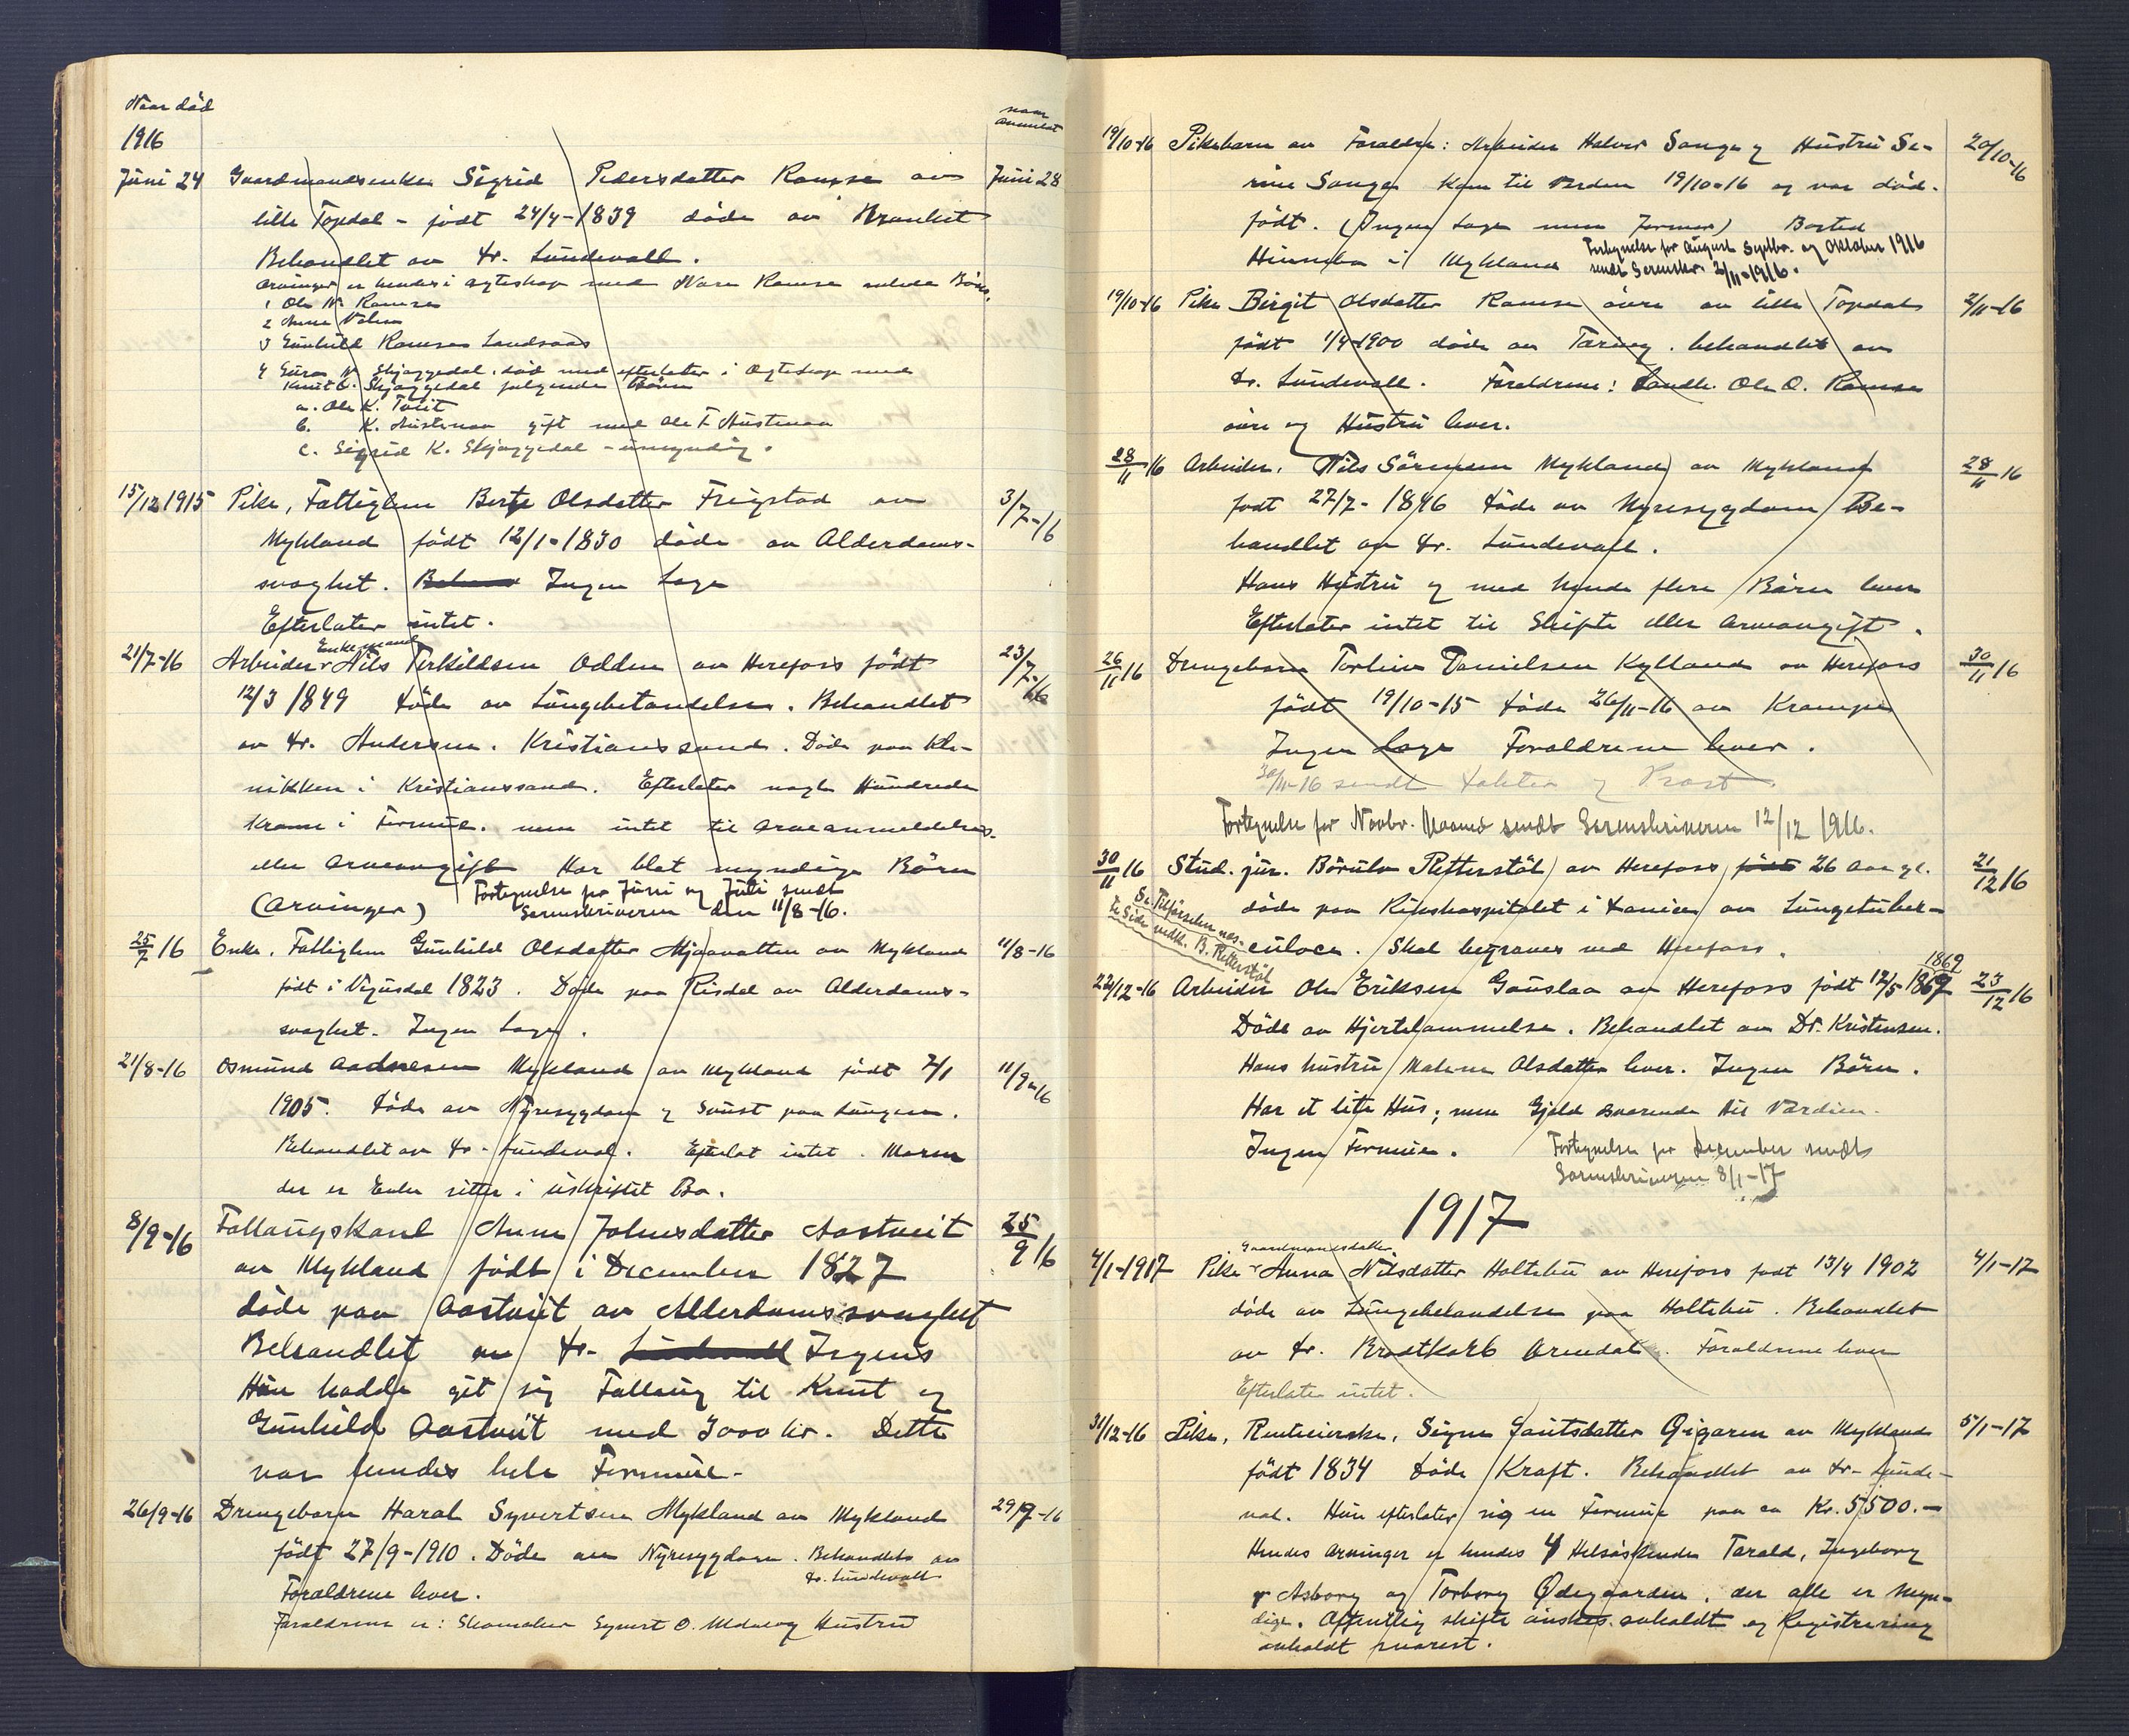 Naar död
naar anmeldt
1916
Juni 24 Gaardmandsenke Sigrid Pedersdatter Ramse av Juni 28
lille Topdal - født 24/4-1839 døde av Bronkit
Behandlet av Dr. Lundevall.
Arvinger er hendes i ægteskap med Nare Ramse Børn.
1 Ole N. Ramse
2 Anne
3 Gunhild Ramse Landsaas
4 Guro N. Skjæggedal, død med efterlatte i Ægteskap med
Knut O. Skjæggedal følgende Børn
a. Ole K. Tveit
b. K. Austenaa gift med Ole T. Austenaa
c. Sigrid K. Skjæggedal - umyndig.
15/12 1915 Pike, Fattiglem Berte Olsdatter Frigstad av 3/7-16
Mykland født 12/1-1830 døde av Alderdoms-
svaghet. Ingen Læge
Efterlater intet.
Enkemand
21/7-16 Arbeider Nils Terkildsen Odden av Herefoss født 23/7-16
12/3 1849 Døde av Lungebetændelse. Behandlet
av Dr. Andersen. Kristianssand. Døde paa Kli-
nikken i Kristianssand. Efterlater nogle Hundrede
Kroner i Formue. men intet til Arveanmeldelse
eller Arveavgift Har blot myndige Børn
(Arvinger) Fortegnelse for Juni og Juli sendt
Sorenskriveren den 11/8-16.
25/7 16 Enke, Fattiglem Gunhild Olsdatter Mjaavatten av Mykland 11/8-16
født i Vegusdal 1823. Døde paa Risdal av Alderdoms-
svaghet. Ingen Læge.
21/8-16 Osmund Aadnesen Mykland av Mykland født 7/1 11/9-16
1905. Døde av Nyresygdom og Svulst paa Lungen.
Behandlet av Dr. Lundeval. Efterlot intet. Moren
der er Enke sitter i uskiftet Bo.
8/9-16 Føllaugskone Anne Johnsdatter Aastveit 25/9 16
av Mykland født i December 1827
døde paa Aastveit av Alderdomssvaghet
Behandlet av Dr. Lundevall Irgens
Hun hadde git sig Føllaug til Knut og
Gunhild Aastveit med 3000 kr. Dette
var hendes hele Formue.
26/9-16 Drengebarn Haral Syvertsen Mykland av Mykland 29/9-16
født 27/9-1910. Døde av Nyresygdom. Behandlet av
Dr. Lundevall
Forældrene lever.
Forældrene er: Skomaker Syvert O. og Hustru
19/10-16 Pikebarn av Forældre: Arbeider Halvor Sange og Hustru Se- 20/10-16
rine Sange kom til Verden 19/10-16 og var død-
født. (Ingen Læge men Jormor) Bosted
Hinneba i Mykland Fortegnelse for August Septbr. og Oktober 1916
sendt Sorenskr. 2/11-1916.
19/10-16 Pike Birgit Olsdatter Ramse øvre av lille Topdal 2/11-16
født 1/4-1900 døde av Tæring. behandlet av
Dr. Lundevall. Forældrene: Landh. Ole O. Ramse
øvre og Hustru lever.
28/11 16 Arbeider. Nils Sørensen Mykland av Mykland 28/11 16
født 27/7-1846 døde av Nyresygdom Be-
handlet av Dr. Lundevall.
Hans Hustru og med hende flere Børn lever
Efterlater intet til Skifte eller Arveavgift.
26/11 16 Drengebarn Torleiv Danielsen Kylland av Herefoss 30/11 16
født 19/10-15 døde 26/11-16 av Krampe
Ingen Læge Forældrene lever.
30/11-16 sendt Dokter og Prost
Fortegnelse for Novbr. Maaned sendt Sorenskriveren 12/12 1916.
30/11 16 Stud. jur. Børulv Retterstøl av Herefoss født 26 Aar gl. 21/12 16
døde paa Rikshospitalet i Kania av Lungetuber-
culoce. Skal begraves ved Herefoss.
Se Tilførselen næs-
te Side vedk. B. Retterstøl
1869
22/12-16 Arbeider Ole Eriksen Gauslaa av Herefoss født 12/5 1869 23/12 16
Døde av Hjertelammelse. Behandlet av Dr. Kristensen.
Hans hustru Malene Olsdatter lever. Ingen Børn.
Har et lite Hus; men Gjæld svarende til Værdien.
Ingen Formue. Fortegnelse for December sendt
Sorenskriveren 8/1-17
1917
Gaardmandsdatter
4/1-1917 Pike Anna Nilsdatter Holtebu av Herefoss født 13/4 1902 4/1-17
døde av Lungebetændelse paa Holtebu. Behandlet
av Dr. Brodtkorb Arendal. Forældrene lever
Efterlater intet.
31/12-16 Pike, Rentenierske, Signe Gautsdatter Øigaren av Mykland 5/1-17
født 1834 Døde Kræft. Behandlet av Dr. Lunde-
val. Hun efterlater sig en Formue paa ca Kr. 5500.-
Hendes Arvinger er hendes 4 Helsøskende Tarald, Ingeborg
Asborg og Torborg Ødegaarden, der alle er myn-
dige. Offentlig skifte ønskes avholdt og Registrering
avholdt snarest.